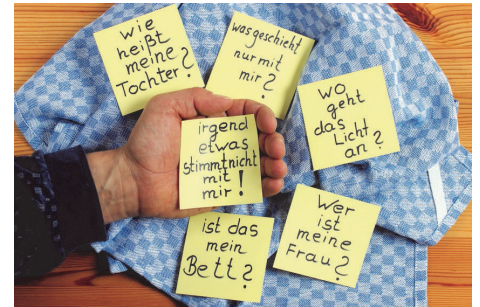 wie
heißt
meine
Tochter?
was geschieht
nur mit
mir?
wo
geht
das
Licht
an?
irgend
etwas
stimmt nicht
mit
mir!
ist das
mein
Bett?
Wer
ist
meine
Frau?